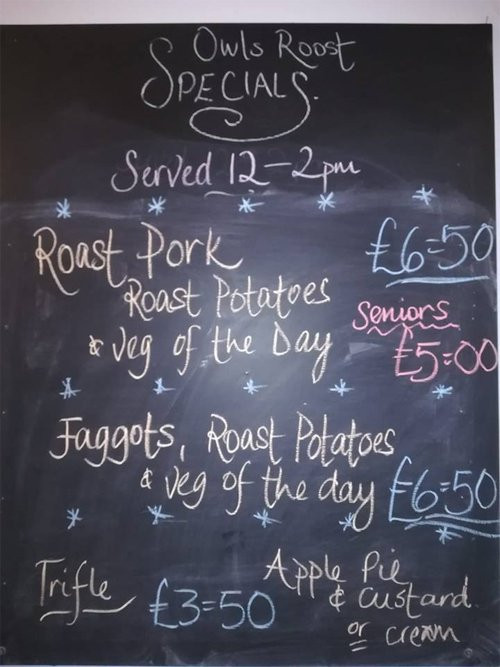 Owls Roost
SPECIALS.
Served 12-2pm
Roast Pork £6=50
Roast Potatoes
& Veg of the Day
Seniors
£5=00
Faggots, Roast Potatoes
& Veg of the day £6=50
Trifle £3=50
Apple Pie
& Custard
or cream